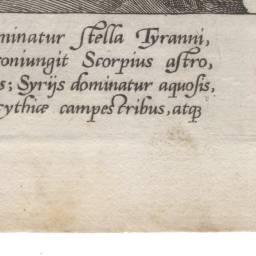 minatur stella Tyranni,
oniungit Scorpius astro,
s; Syrijs dominatur aquosis,
cythiæ campestribus, atq